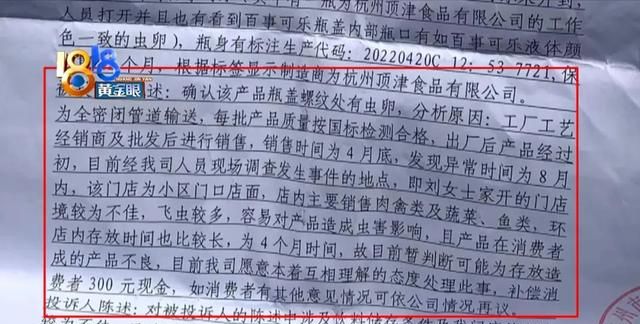 人员打开并且也有看到百事可乐瓶盖内部瓶口有如百事可乐液体颜
色一致的虫卵），瓶身有标注生产代码：20220420C 12：53 7721，保
个月，根据标签显示制造商为杭州顶津食品有限公司。
1818
黄金眼
述：确认该产品瓶盖螺纹处有虫卵，分析原因：工厂工艺
为全密闭管道输送，每批产品质量按国标检测合格，出厂后产品经过
经销商及批发后进行销售，销售时间为4月底，发现异常时间为8月
初，目前经我司人员现场调查发生事件的地点，即刘女士家开的门店
内，该门店为小区门口店面，店内主要销售肉禽类及蔬菜、鱼类，环
境较为不佳，飞虫较多，容易对产品造成虫害影响，且产品在消费者
店内存放时间也比较长，为4个月时间，故目前暂判断可能为存放造
成的产品不良，目前我司愿意本着互相理解的态度处理此事，补偿消
费者300元现金，如消费者有其他意见情况可依公司情况再议。
投诉人陈述：对被投诉人的陈述中涉及